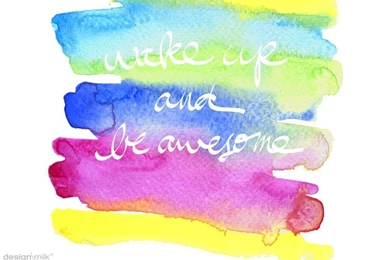 wake up
and
be awesome
design milk